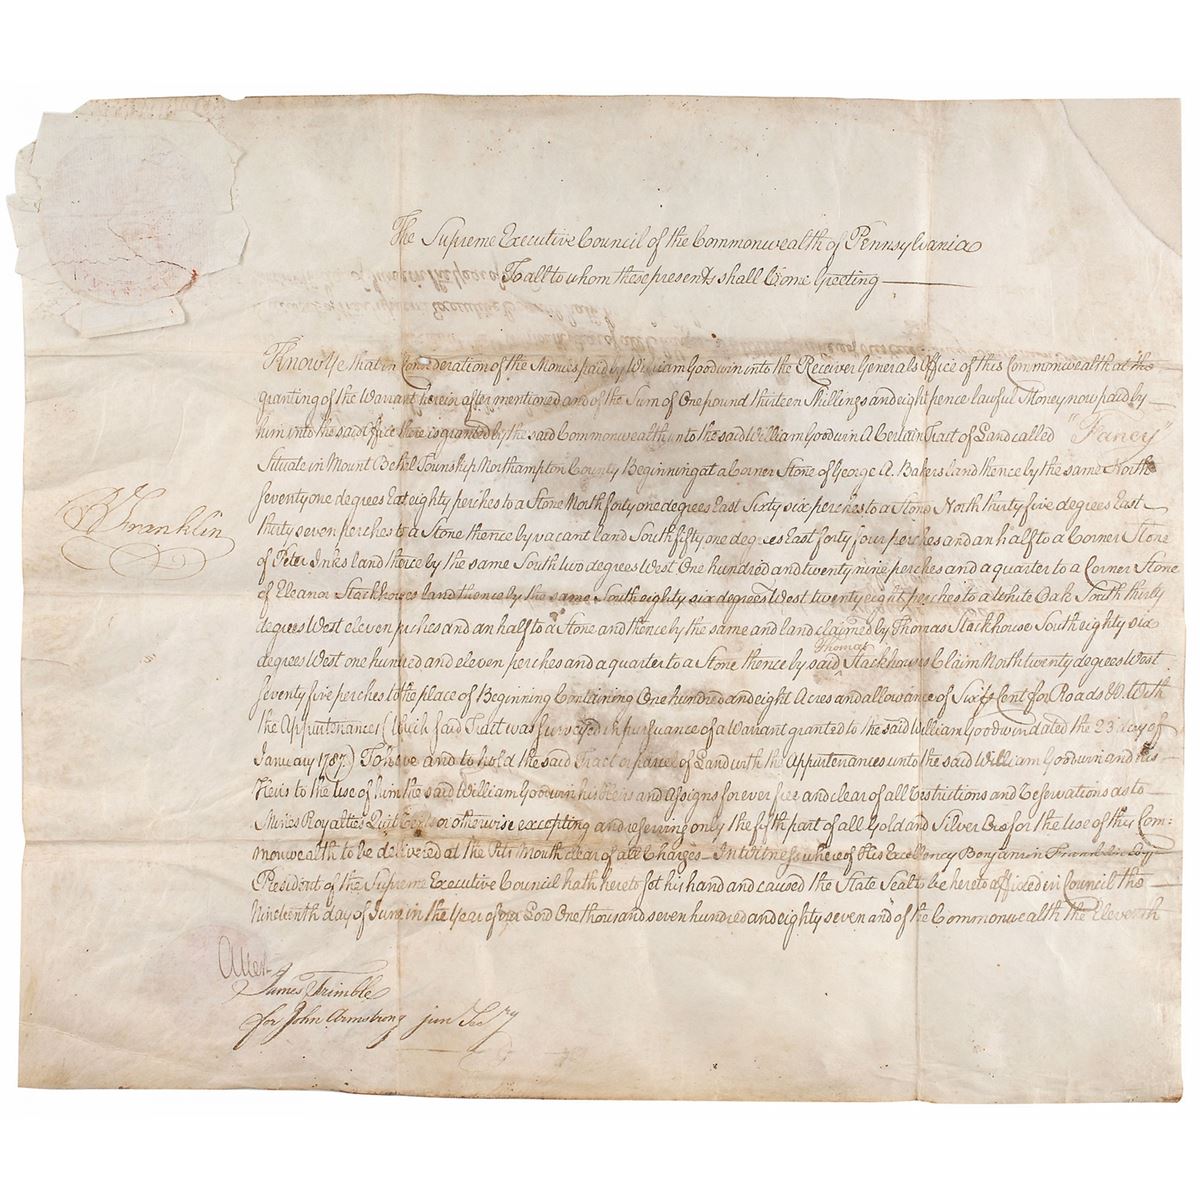 The Supreme Executive Council of the Commonwealth of Pennsylvania
To all to whom these presents shall Come Greeting
Know Ye that in Consideration of the Monies paid by William Goodwin into the Receiver Generals Office of this Commonwealth at the
granting of the Warrant herein after mentioned and of the Sum of One pound thirteen Shillings and eight pence lawful Money now paid by
him into the said Office there is granted by the said Commonwealth unto the said William Goodwin A Certain Tract of Land called "Fancy"
Situate in Mount Bethel Township Northampton County Beginning at a Corner Stone of George A. Bakers land thence by the same North
seventy one degrees East eighty perches to a Stone North forty one degrees East Sixty six perches to a Stone North thirty five degrees East
thirty seven perches to a Stone thence by vacant land South fifty one degrees East forty four perches and an half to a Corner Stone
of Peter Inks land thence by the same South two degrees West One hundred and twenty nine perches and a quarter to a Corner Stone
of Eleanor Stackhouses land thence by the same South eighty six degrees West twenty eight perches to a White Oak South thirty
degrees West eleven perches and an half to a Stone and thence by the same and land claimed by Thomas Stackhouse South eighty six
degrees West one hundred and eleven perches and a quarter to a Stone thence by said Thomas Stackhouses Claim North twenty degrees West
seventy five perches to the place of Beginning Containing One hundred and eight Acres and allowance of Six P Cent for Roads &c With
the Appurtenances (Which said Tract was surveyed in pursuance of a Warrant granted to the said William Goodwin dated the 23d day of
January 1787.) To have and to hold the said Tract or parcel of Land with the Appurtenances unto the said William Goodwin and his
Heirs to the Use of him the said William Goodwin his Heirs and Assigns forever free and clear of all Restrictions and Reservations as to
Mines Royalties Quit Rents or otherwise excepting and reserving only the fifth part of all Gold and Silver Ore for the Use of this Com:
monwealth to be delivered at the Pits Mouth clear of all Charges In Witness whereof His Excellency Benjamin Franklin Esqr
President of the Supreme Executive Council hath hereto set his hand and caused the State Seal to be hereto affixed in Council the
Nineteenth day of June in the Year of our Lord One thousand seven hundred and eighty seven and of the Commonwealth the Eleventh
B Franklin
Attest
James Trimble
for John Armstrong jun Secry